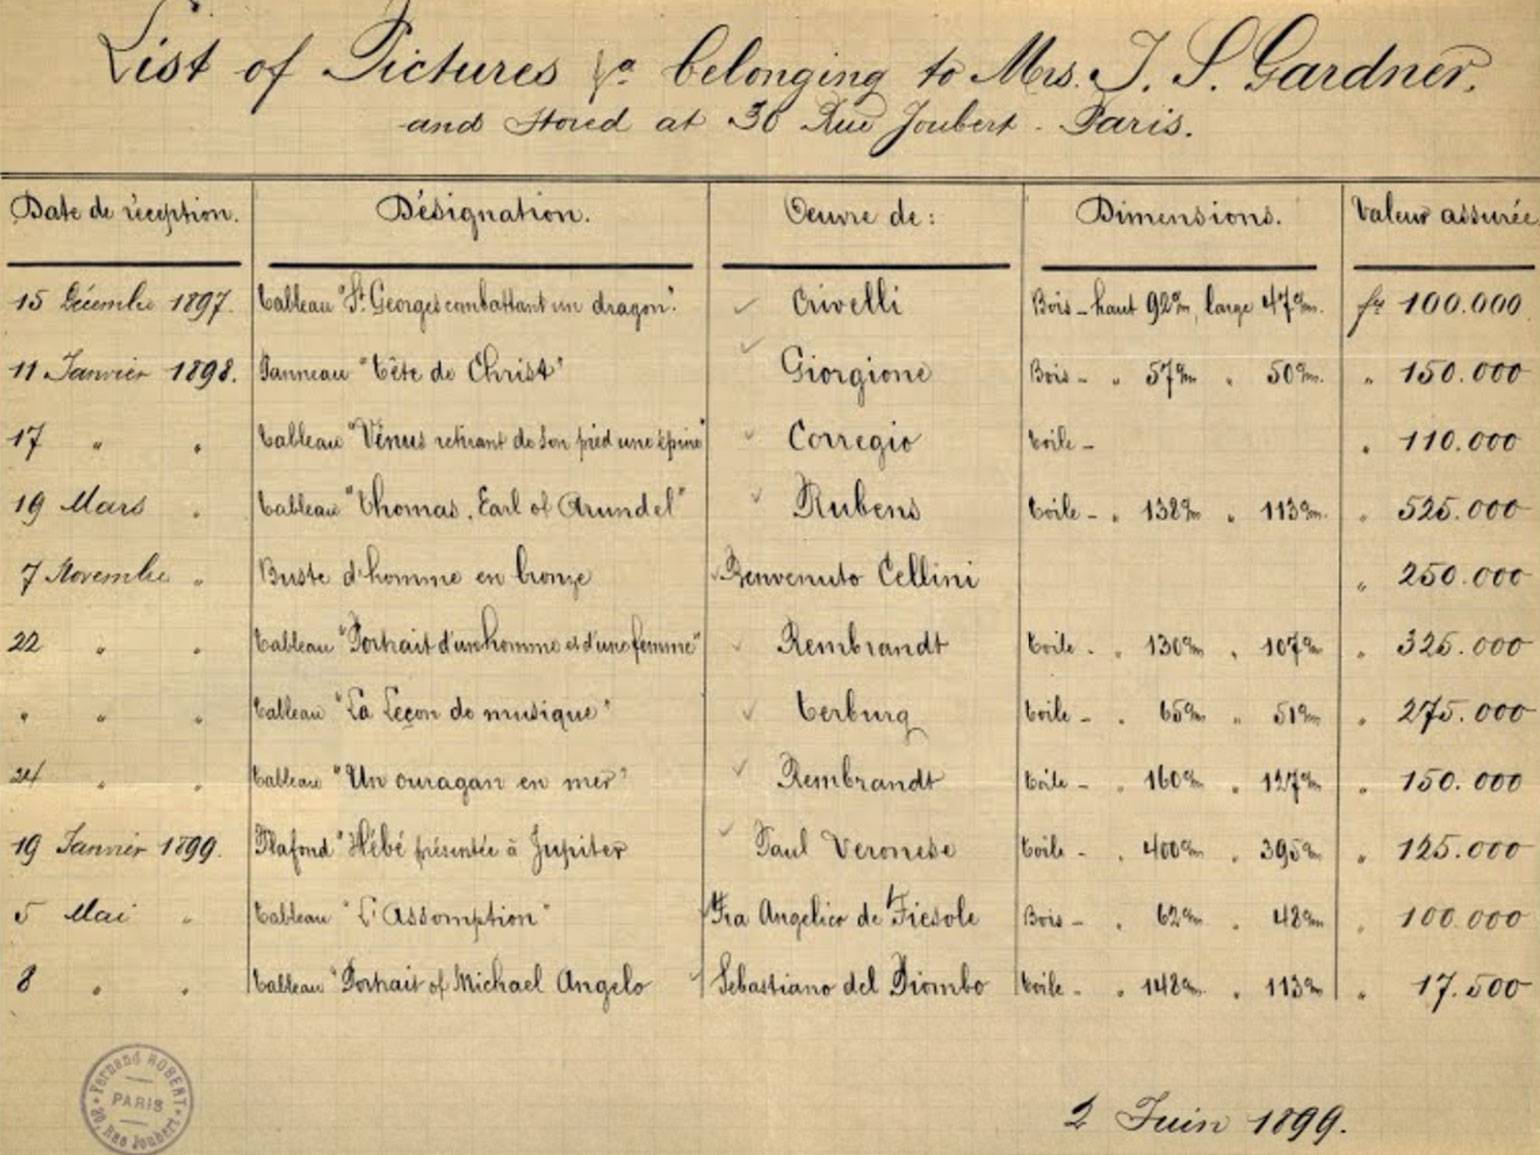 List of Pictures &a belonging to Mrs. J. S. Gardner,
and Stored at 30 Rue Joubert - Paris.
Date de réception. Désignation. Oeuvre de: Dimensions. Valeur assurée
15 Décembre 1897. Tableau "St. Georges combattant un dragon". Crivelli Bois - haut 92 c/m, large 47 c/m. frs 100.000
11 Janvier 1898. Panneau "Tête de Christ" Giorgione Bois - " 57 c/m " 50 c/m. " 150.000
17 " " Tableau "Vénus retirant de son pied une épine" Corregio Toile - " 110.000
19 Mars " Tableau "Thomas, Earl of Arundel" Rubens Toile - " 138 c/m " 113 c/m. " 525.000
7 Novembre " Buste d'homme en bronze Benvenuto Cellini " 250.000
22 " " Tableau "Portrait d'un homme et d'une femme" Rembrandt Toile - " 130 c/m " 107 c/m " 325.000
" " " Tableau "La Leçon de musique" Terburg Toile - " 65 c/m " 51 c/m " 275.000
24 " " Tableau "Un ouragan en mer" Rembrandt Toile - " 160 c/m " 127 c/m " 150.000
19 Janvier 1899. Plafond "Hébé présentée à Jupiter Paul Veronese Toile - " 400 c/m " 395 c/m " 125.000
5 Mai " Tableau "L'Assomption" Fra Angelico de Fiesole Bois - " 62 c/m " 48 c/m " 100.000
8 " " Tableau "Portrait of Michael Angelo Sebastiano del Piombo Toile - " 148 c/m " 113 c/m " 17.500
Fernand ROBERT
PARIS
30, Rue Joubert
2 Juin 1899.